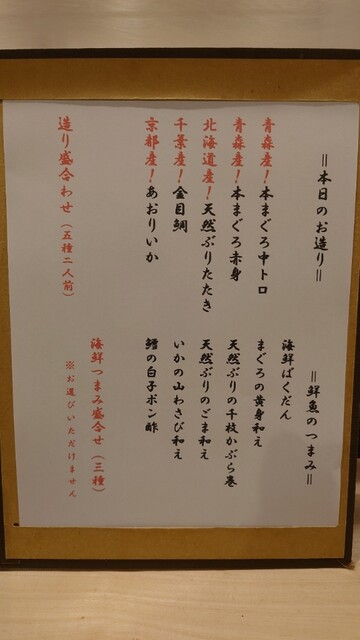 ＝本日のお造り＝
青森産！本まぐろ中トロ
青森産！本まぐろ赤身
北海道産！天然ぶりたたき
千葉産！金目鯛
京都産！あおりいか
造り盛合わせ（五種二人前）
＝鮮魚のつまみ＝
海鮮ばくだん
まぐろの黄身和え
天然ぶりの千枚かぶら巻
天然ぶりのごま和え
いかの山わさび和え
鱈の白子ポン酢
海鮮つまみ盛合せ（三種）
※お選びいただけません